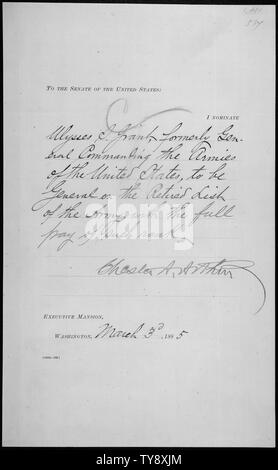 To the Senate of the United States:
I nominate
Ulysses S. Grant, formerly Gen-
eral Commanding the Armies
of the United States, to be
General on the Retired List
of the Army with the full
pay of such rank.
Chester A. Arthur
Executive Mansion,
Washington, March 3d 1885
alamy
alamy
TY8XJM
www.alamy.com